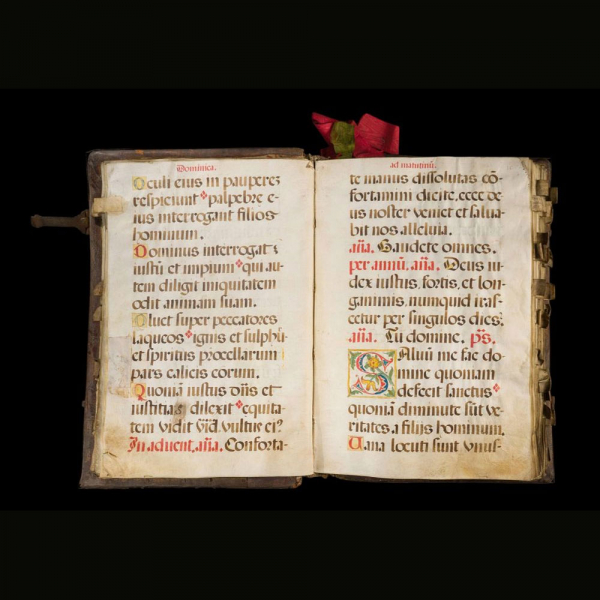 Dominica.
Oculi eius in pauperez
respiciunt palpebre e-
ius interrogant filios
hominum.
Dominus interrogat
iustū et impium qui au-
tem diligit iniquitatem
odit animam suam.
Pluet super peccatores
laqueos ignis et sulphu
et spiritus procellarum
pars calicis eorum.
Quoniā iustus dn̄s et
iustitias dilexit equita-
tem vidit vultus ei?
In aduent. añā. Conforta-
ad matutinū.
te manus dissolutas cō-
fortamini dicite, ecce de
us noster veniet et salua-
bit nos alleluia.
añā. Gaudete omnes.
per annū. añā. Deus iu-
dex iustus, fortis, et lon-
ganimis, numquid iras-
cetur per singulos dies?
añā. Tu domine. ps̄.
Saluū me fac do-
mine quoniam
defecit sanctus
quoniā diminute sūt ve-
ritates a filiis hominum.
Uana locuti sunt vnus-